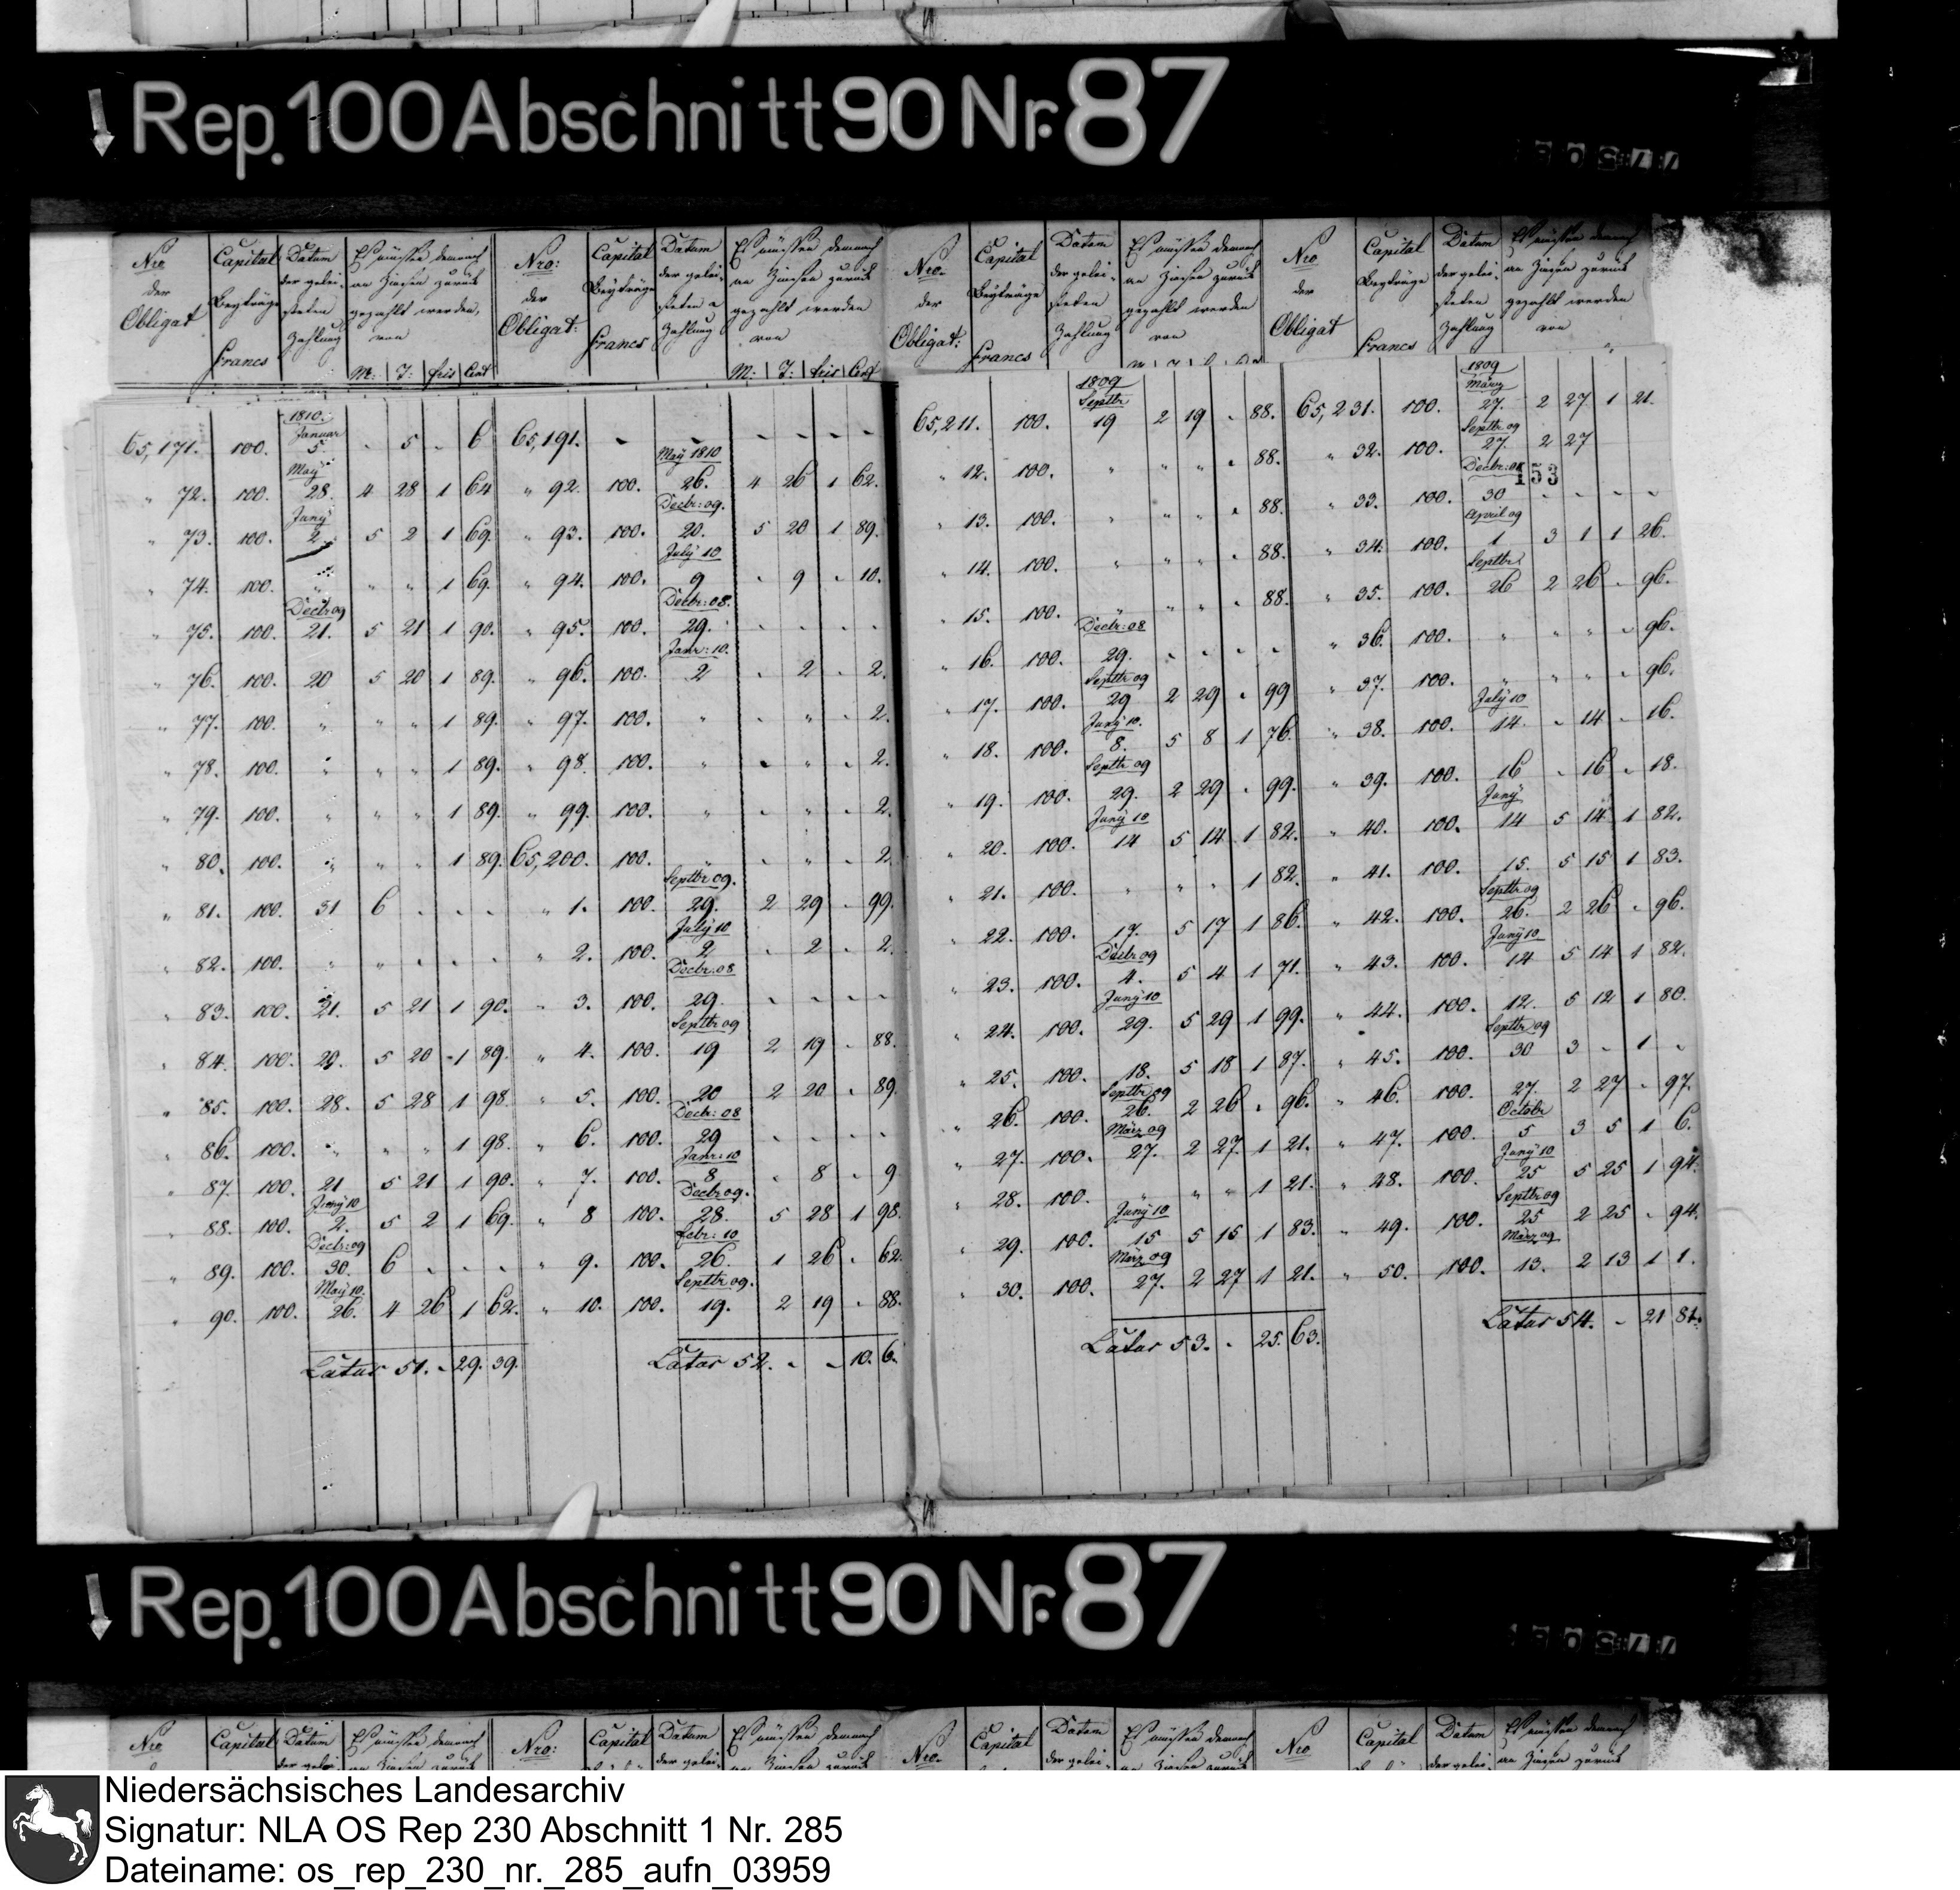 Rep. 100 Abschnitt 90 Nr. 87
Nro der Obligat | Capital Beyträge Francs | Datum der gelei- steten Zahlung | Es müssen demnach an Zinsen zurück gezahlt werden, von M: | T: | frcs | Cent
Nro: der Obligat: | Capital Beyträge Francs | Datum der gelei- steten Zahlung | Es müssen demnach an Zinsen zurück gezahlt werden von M: | T: | frcs | Cent
Nro. der Obligat: | Capital Beyträge Francs | Datum der gelei- steten Zahlung | Es müssen demnach an Zinsen zurück gezahlt werden von
Nro der Obligat | Capital Beyträge Francs | Datum der gelei- steten Zahlung | Es müssen demnach an Zinsen zurück gezahlt werden von
153
65,171. 100. 1810. Januar 5 - 5 - 6
" 72. 100. May 28. 4 28 1 64
" 73. 100. Juny 2. 5 2 1 69
" 74. 100. " " " 1 69.
" 75. 100. Decbr 09 21. 5 21 1 90.
" 76. 100. 20 5 20 1 89.
" 77. 100. " " " 1 89.
" 78. 100. " " " 1 89.
" 79. 100. " " " 1 89.
" 80. 100. " " " 1 89.
" 81. 100. 31 6 - - -
" 82. 100. " " - - -
" 83. 100. 21. 5 21 1 90.
" 84. 100. 20. 5 20 1 89.
" 85. 100. 28. 5 28 1 98.
" 86. 100. " " " 1 98.
" 87. 100. 21 5 21 1 90.
" 88. 100. Juny 10 2. 5 2 1 69.
" 89. 100. Decbr: 09 30. 6 - - -
" 90. 100. May 10. 26. 4 26 1 62.
Latus 51. - 29. 39.
65,191. - - - - - -
" 92. 100. May 1810 26. 4 26 1 62.
" 93. 100. Decbr: 09. 20. 5 20 1 89.
" 94. 100. July 10 9 - 9 - 10.
" 95. 100. Decbr: 08. 29. - - - -
" 96. 100. Janr: 10. 2 - 2 - 2.
" 97. 100. " - " - 2.
" 98. 100. " - " - 2.
" 99. 100. " - " - 2.
65,200. 100. " - " - 2
" 1. 100. Septbr 09. 29. 2 29 - 99.
" 2. 100. July 10 2 - 2 - 2.
" 3. 100. Decbr: 08 29. - - - -
" 4. 100. Septbr 09 19 2 19 - 88.
" 5. 100. 20 2 20 - 89.
" 6. 100. Decbr: 08 29 - - - -
" 7. 100. Janr: 10 8 - 8 - 9
" 8 100. Decbr 09. 28. 5 28 1 98.
" 9. 100. Febr: 10 26. 1 26 - 62.
" 10. 100. Septbr 09. 19. 2 19 - 88.
Latus 52. - - 10. 6.
65,211. 100. 1809 Septbr 19 2 19 - 88.
" 12. 100. " " " - 88.
" 13. 100. " " " - 88.
" 14. 100. " " " - 88.
" 15. 100. " " " - 88.
" 16. 100. Decbr: 08 29. - - - -
" 17. 100. Septbr 09 29 2 29 - 99
" 18. 100. Juny 10. 8. 5 8 1 76.
" 19. 100. Septbr 09 29. 2 29 - 99.
" 20. 100. Juny 10 14 5 14 1 82.
" 21. 100. " " " 1 82.
" 22. 100. 17. 5 17 1 86.
" 23. 100. Decbr 09 4. 5 4 1 71.
" 24. 100. Juny 10 29. 5 29 1 99.
" 25. 100. 18. 5 18 1 87.
" 26. 100. Septbr 09 26. 2 26 - 96.
" 27. 100. März 09 27. 2 27. 1 21.
" 28. 100. " " " 1 21.
" 29. 100. Juny 10 15 5 15 1 83.
" 30. 100. März 09 27. 2 27 1 21.
Latus 53. - 25. 63.
65,231. 100. 1809 März 27. 2 27 1 21.
" 32. 100. Septbr 09 27. 2 27
" 33. 100. Decbr: 08 30 - - - -
" 34. 100. April 09 1 3 1 1 26.
" 35. 100. Septbr 26 2 26 - 96.
" 36. 100. " " " - 96.
" 37. 100. " " " - 96.
" 38. 100. July 10 14. - 14 - 16.
" 39. 100. 16 - 16 - 18.
" 40. 100. Juny 14 5 14 1 82.
" 41. 100. 15. 5 15 1 83.
" 42. 100. Septbr 09 26. 2 26 - 96.
" 43. 100. Juny 10 14 5 14 1 82.
" 44. 100. 12. 5 12 1 80.
" 45. 100. Septbr 09 30 3 - 1 -
" 46. 100. 27. 2 27 - 97.
" 47. 100. Octobr 5 3 5 1 6.
" 48. 100. Juny 10 25 5 25 1 94.
" 49. 100. Septbr 09 25 2 25 - 94.
" 50. 100. März 09 13. 2 13 1 1.
Latus 54. - 21 81.
Rep. 100 Abschnitt 90 Nr. 87
Nro | Capital | Datum der gelei- | Es müssen demnach an Zinsen zurück
Nro: | Capital | Datum der gelei- | Es müssen demnach an Zinsen zurück
Nro. | Capital | Datum der gelei- | Es müssen demnach an Zinsen zurück
Nro | Capital | Datum der gelei- | Es müssen demnach an Zinsen zurück
Niedersächsisches Landesarchiv
Signatur: NLA OS Rep 230 Abschnitt 1 Nr. 285
Dateiname: os_rep_230_nr._285_aufn_03959